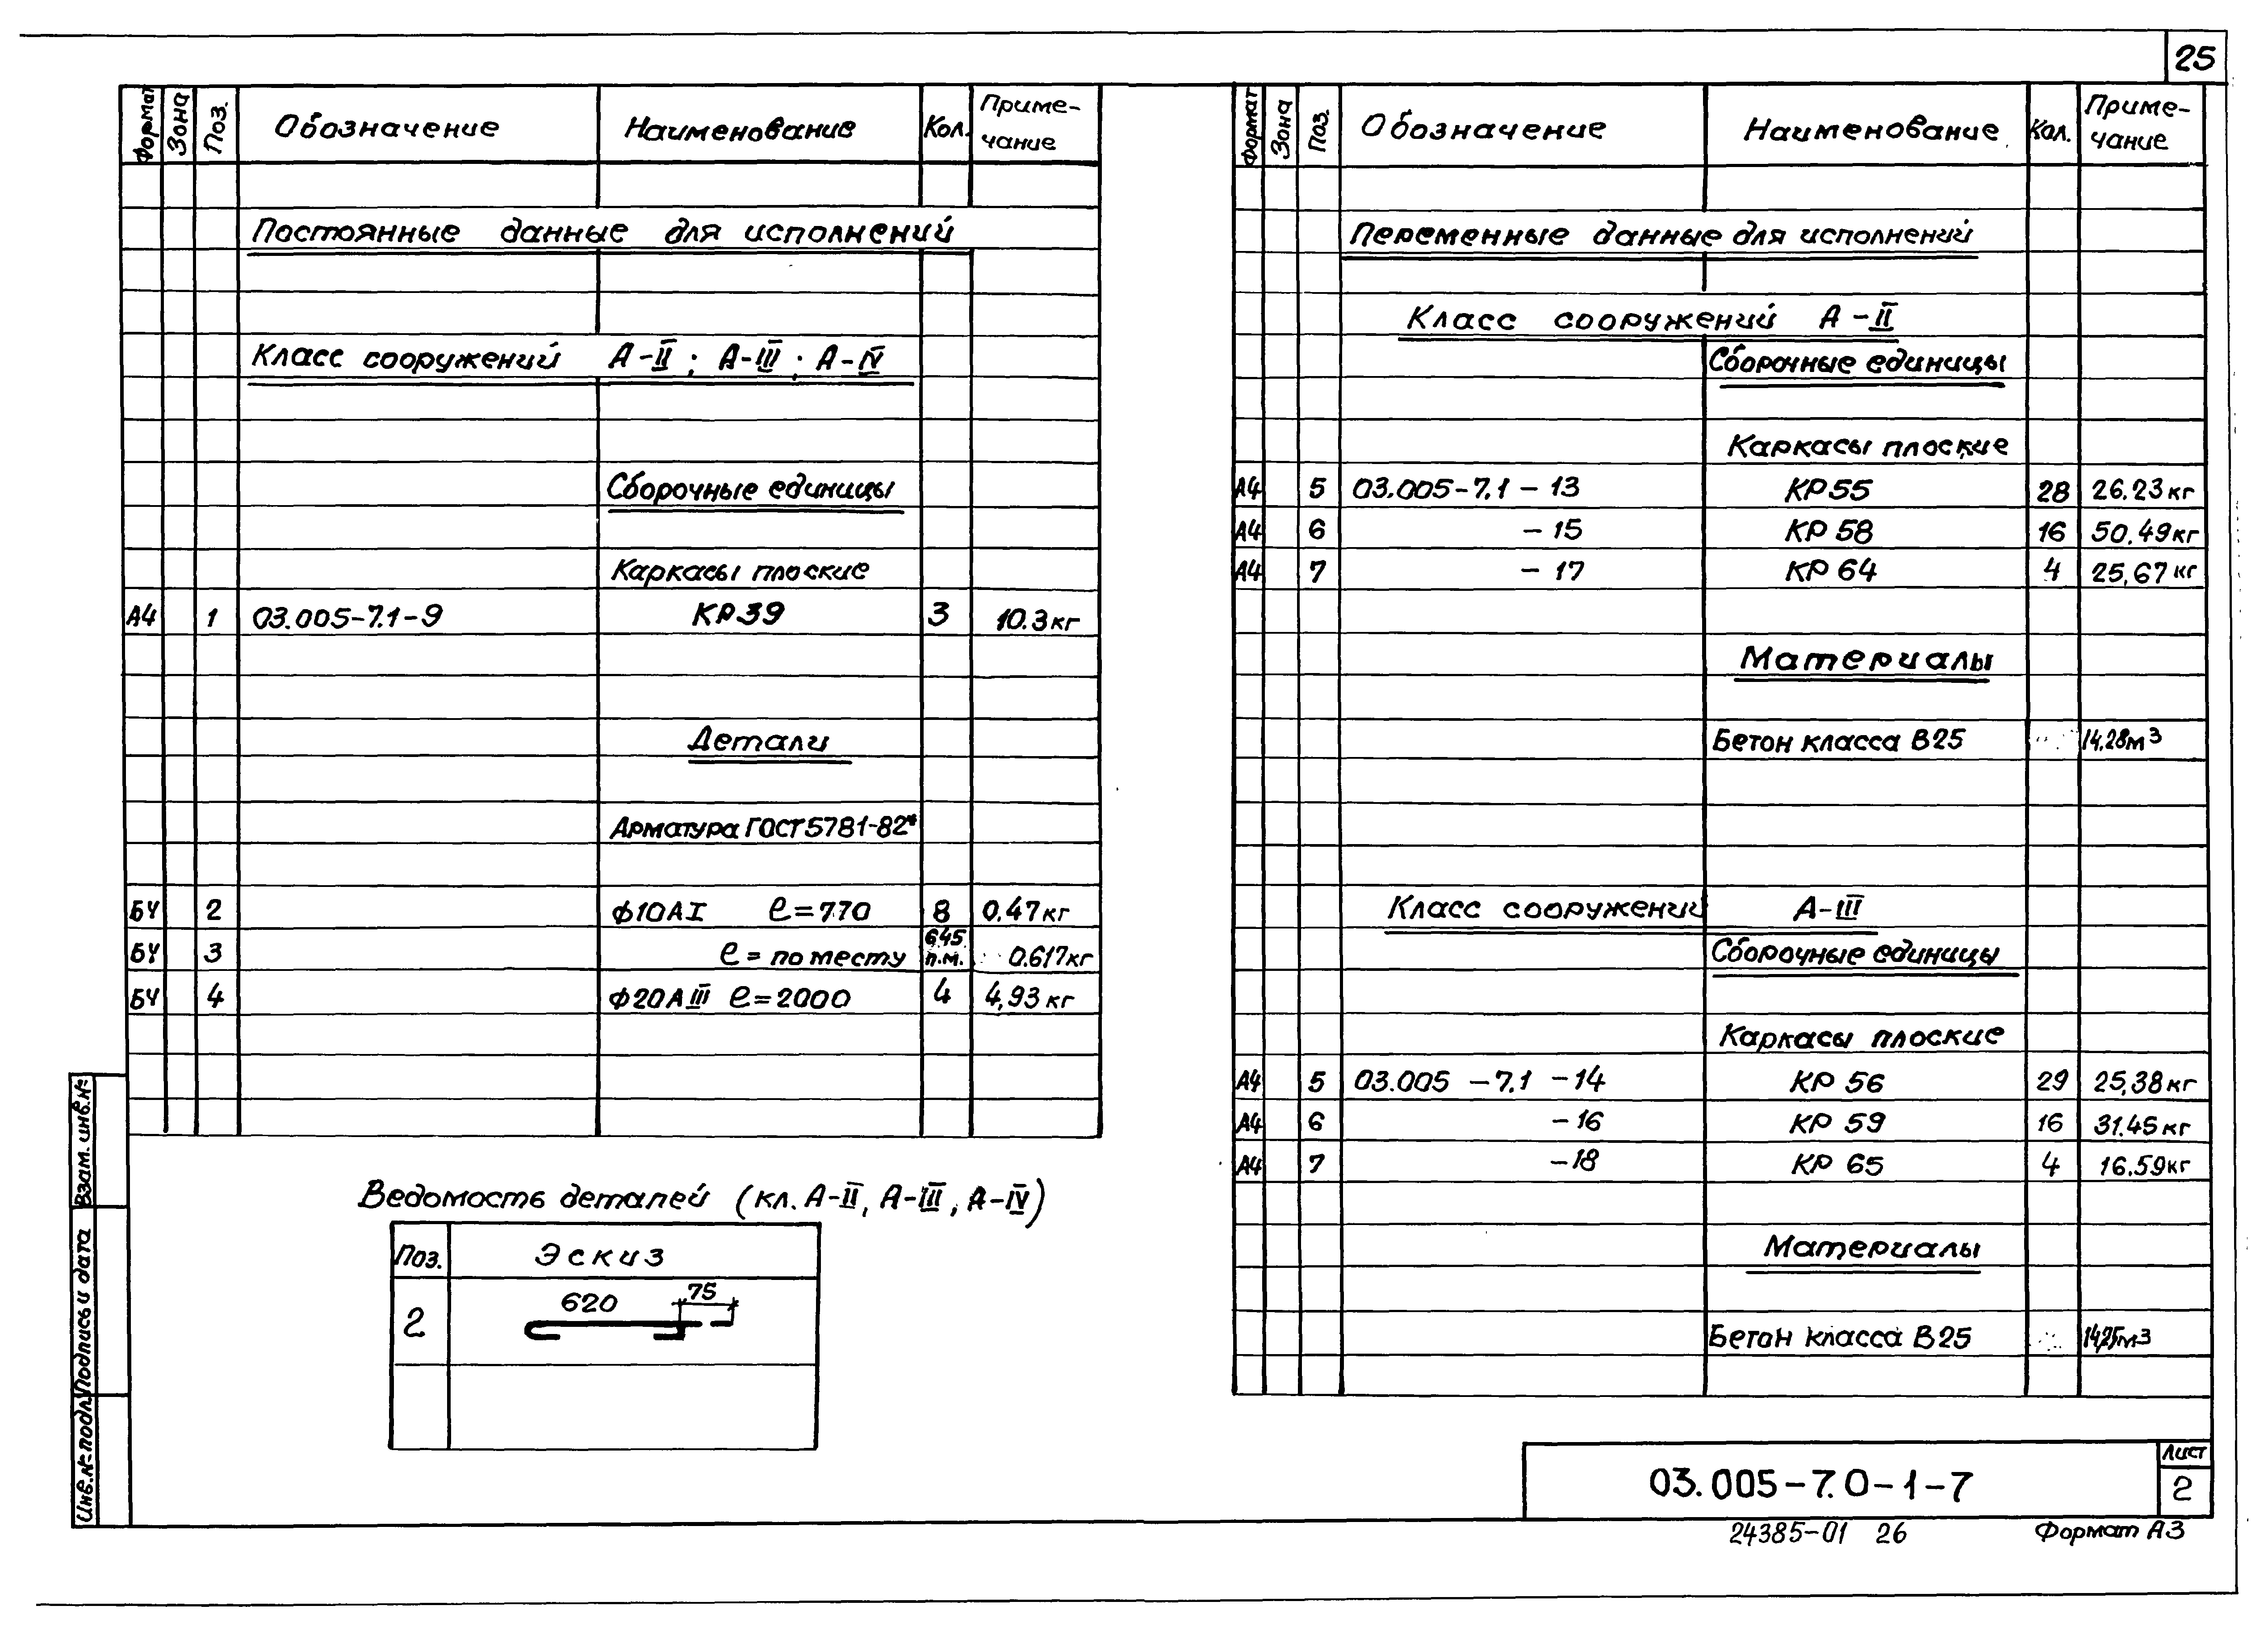 25
Формат Зона Поз. Обозначение Наименование Кол. Приме-
чание
Постоянные данные для исполнений
Класс сооружений А-II; А-III; А-IV
Сборочные единицы
Каркасы плоские
А4 1 03.005-7.1-9 КР39 3 10.3кг
Детали
Арматура ГОСТ5781-82*
БЧ 2 ϕ10АI ℓ=770 8 0.47кг
БЧ 3 ℓ= по месту 645 п.м. 0.617кг
БЧ 4 ϕ20АIII ℓ=2000 4 4,93кг
Ведомость деталей (кл. А-II, А-III, А-IV)
Поз. Эскиз
2 620 75
Формат Зона Поз. Обозначение Наименование Кол. Приме-
чание
Переменные данные для исполнений
Класс сооружений А-II
Сборочные единицы
Каркасы плоские
А4 5 03.005-7.1-13 КР55 28 26.23кг
А4 6 -15 КР58 16 50.49кг
А4 7 -17 КР64 4 25,67кг
Материалы
Бетон класса В25 14,28м³
Класс сооружений А-III
Сборочные единицы
Каркасы плоские
А4 5 03.005-7.1-14 КР 56 29 25,38кг
А4 6 -16 КР 59 16 31.45кг
А4 7 -18 КР 65 4 16.59кг
Материалы
Бетон класса В25 14,25м³
Взам. инв.№
Подпись и дата
Инв.№подл.
03.005-7.0-1-7
Лист
2
24385-01 26
Формат А3